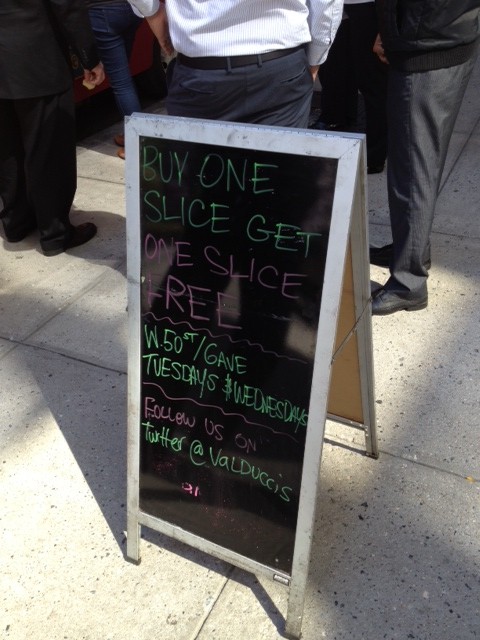 BUY ONE
SLICE GET
ONE SLICE
FREE
W.50ST/6AVE
TUESDAYS & WEDNESDAYS
FOLLOW US ON
Twitter @ VALDUCCiS